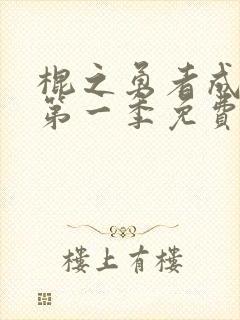 棍之勇者成
第一季免費
樓上有樓